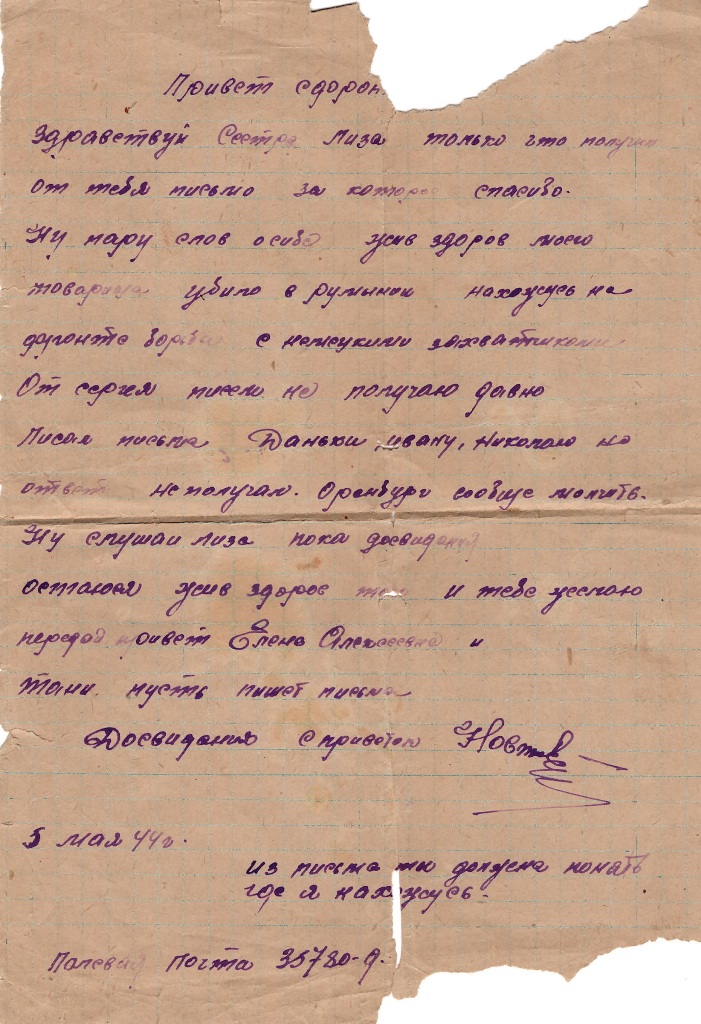 Привет сдорон
Здравствуй Сестра Лиза только что получил
от тебя письмо за которое спасибо.
Ну пару слов о себе жив здоров моего
товарища убило в румынии нахожусь на
фронте борьбы с немецкими захватчиками
От сергея писем не получаю давно
Писал письма Даньки, ивану, Николаю но
ответ не получал. Оренбург сообще молчить.
Ну слушай лиза пока досвидания
остаюся жив здоров того и тебе желаю
передай привет Елена Алексеевна и
тани пусть пишет письма
Досвидания с приветом
5 мая 44 г.
из письма ты должена понать
где я нахожусь.
Полевая почта 35780-д.